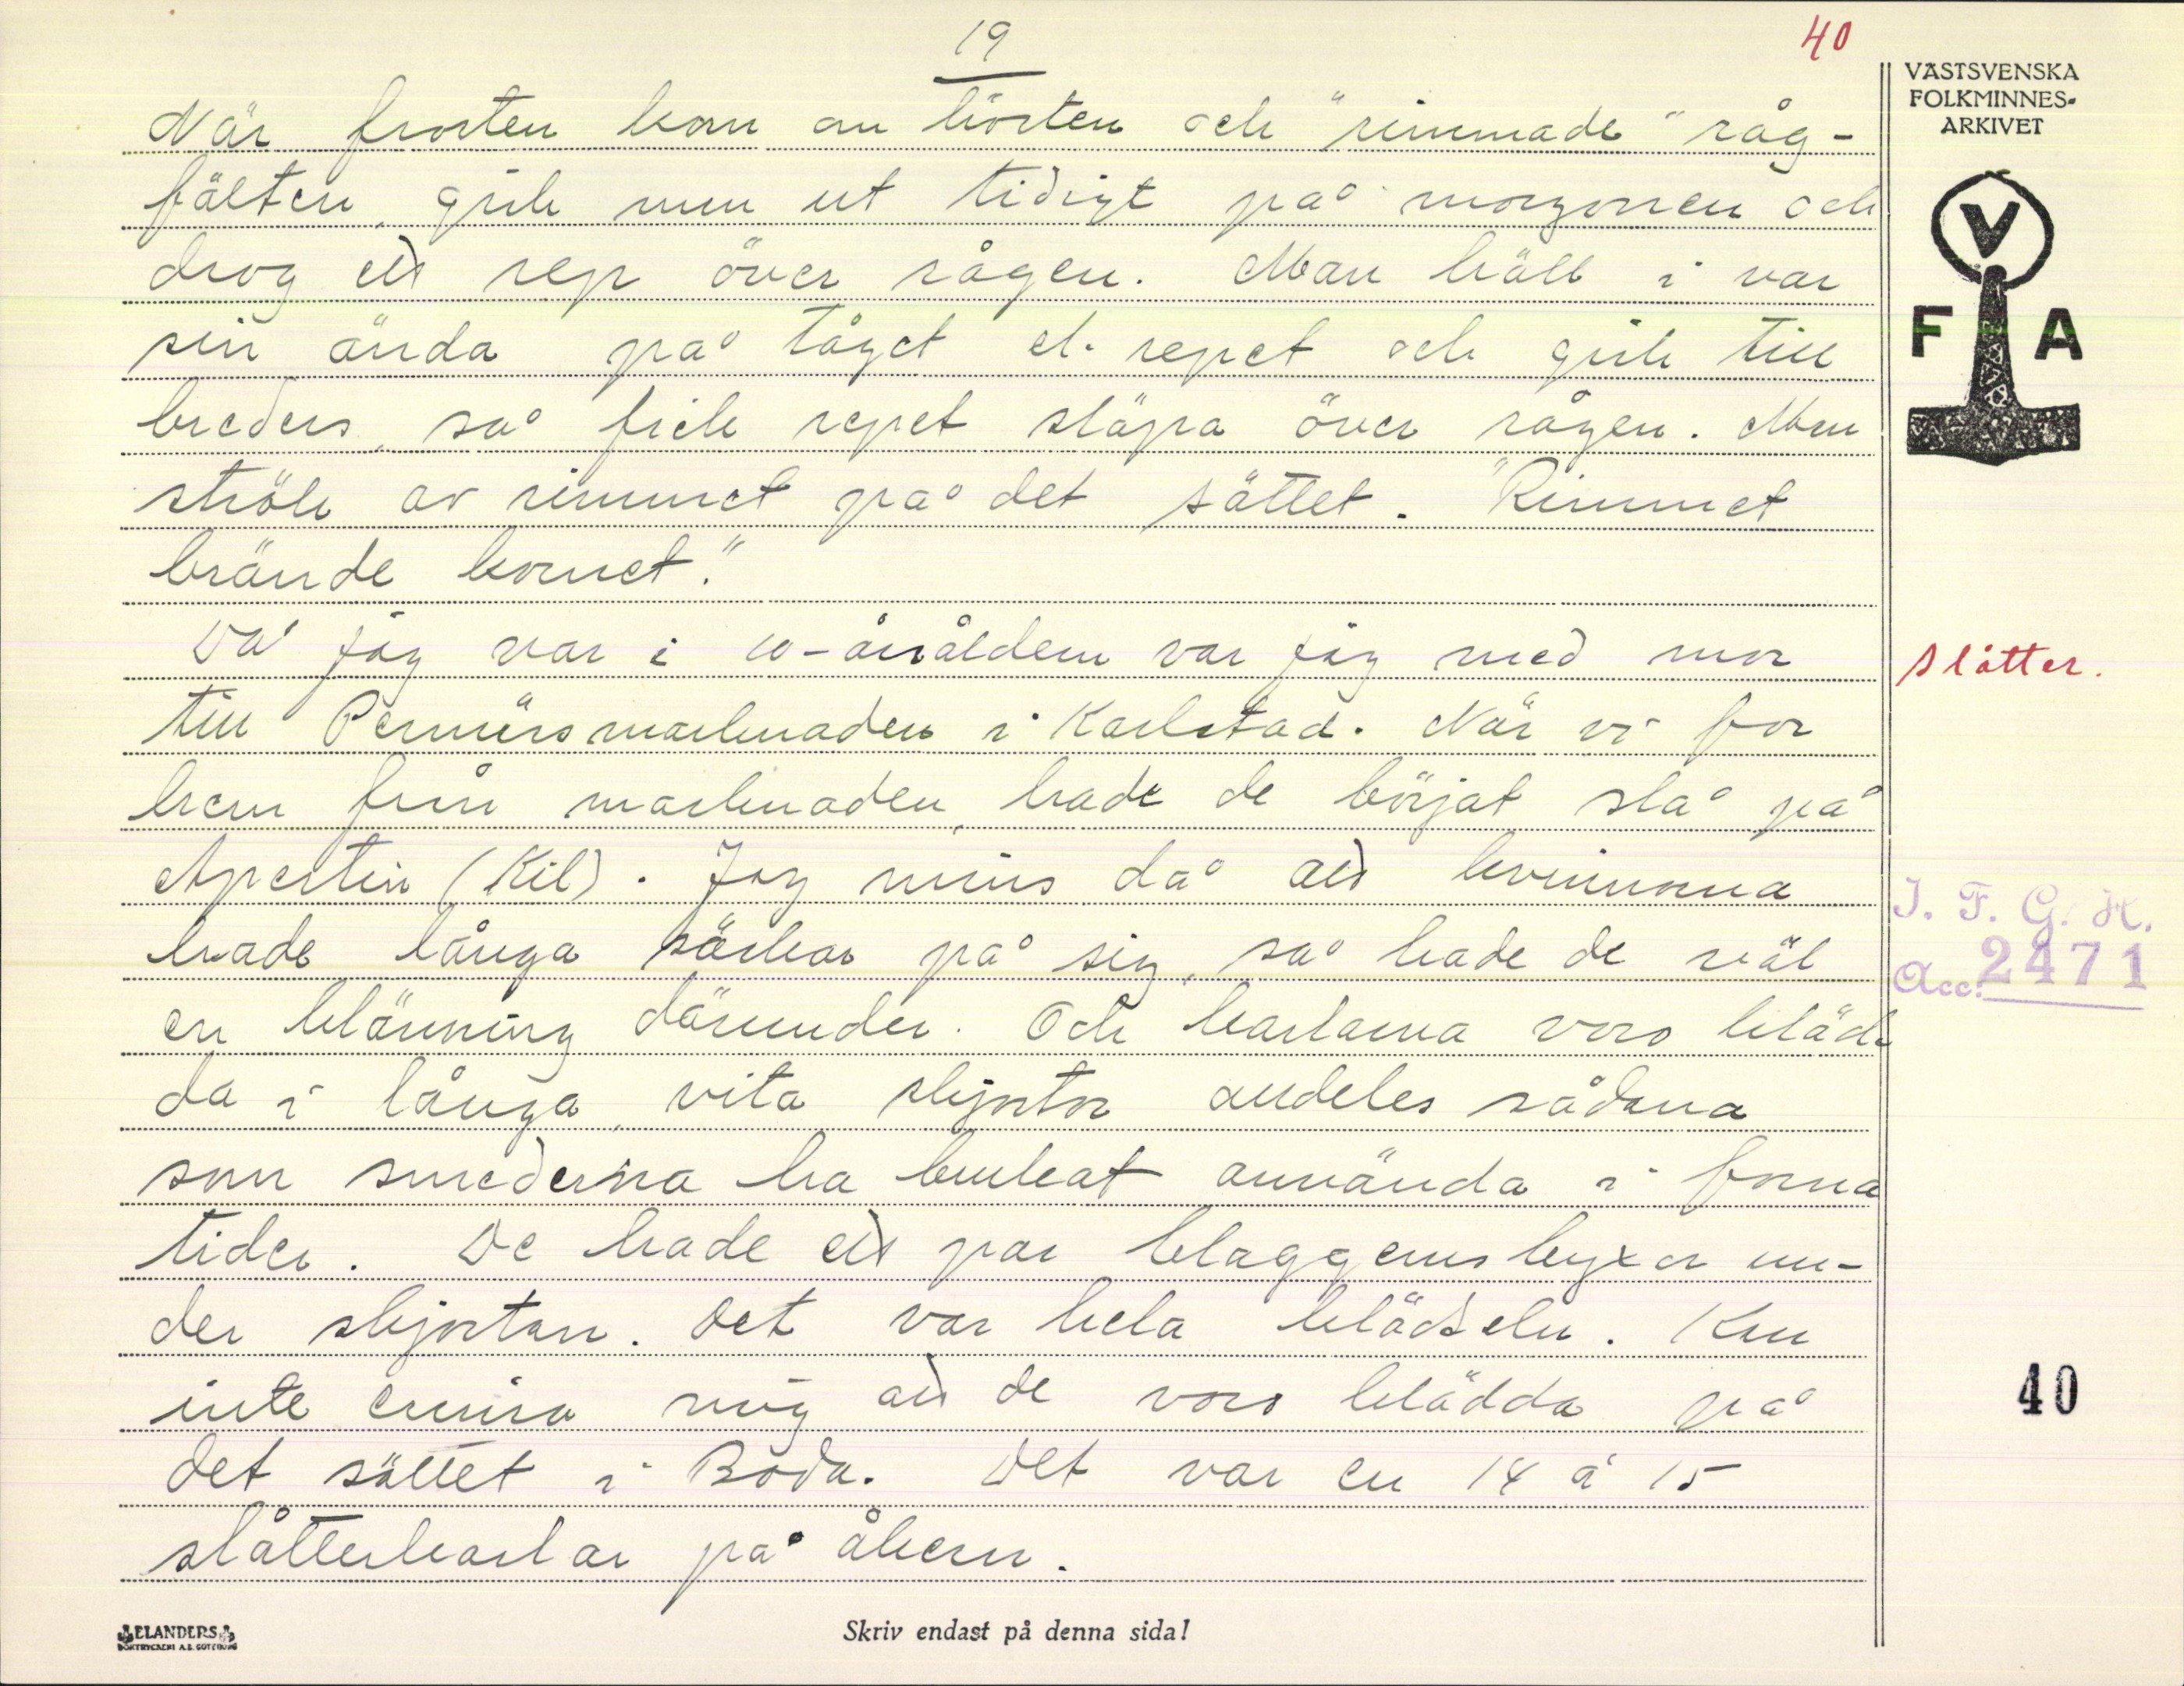 19
40
När frosten kom om hösten och "rimmade" råg-
fälten, gick man ut tidigt på morgonen och
drog ett rep över rågen. Man höll i var
sin ända på tåget el. repet och gick till
breders, så fick repet släpa över rågen. Man
strök av rimmet på det sättet. "Rimmet
brände kornet."
Då jag var i 10-årsåldern var jag med mor
till Persmässmarknaden i Karlstad. När vi for
hem från marknaden, hade de börjat slå på
Apertin (Kil). Jag minns då att kvinnorna
hade långa särkar på sig, så hade de väl
en klänning därunder. Och karlarna voro kläd-
da i långa, vita skjortor alldeles sådana
som smederna ha brukat använda i forna
tider. De hade ett par blaggarnsbyxor un-
der skjortan. Det var hela klädseln. Kan
inte minnas mig att de voro klädda på
det sättet i Boda. Det var en 14 à 15
slåtterkarlar på åkern.
VÄSTSVENSKA
FOLKMINNES-
ARKIVET
V
F A
slåtter.
I. F. G. H.
Acc. 2471
40
ELANDERS
BOKTRYCKERI A.B. GÖTEBORG
Skriv endast på denna sida!